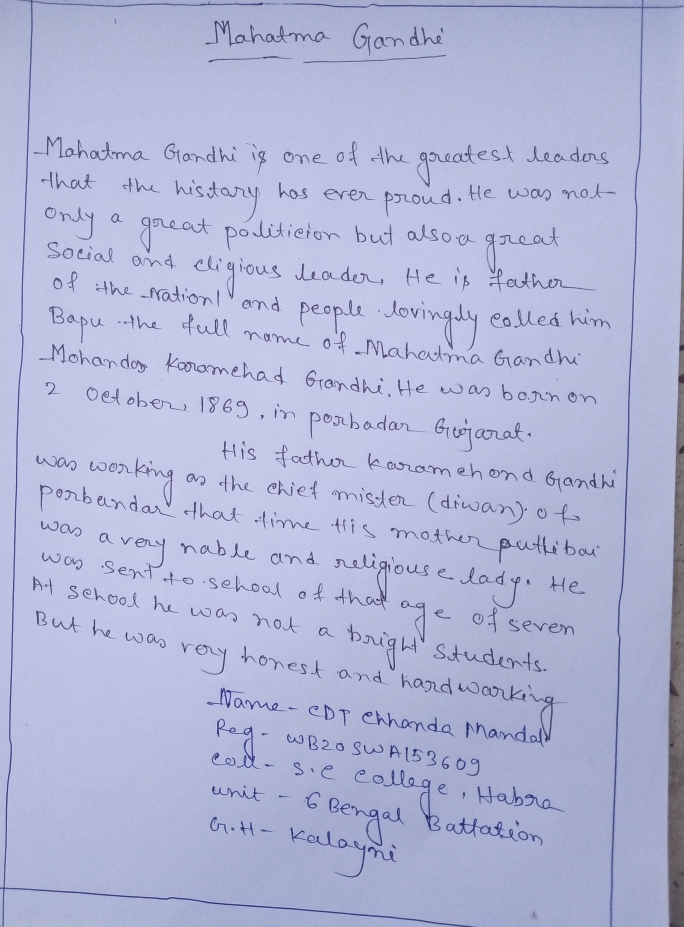 Mahatma Gandhi
Mahatma Gandhi is one of the greatest leaders
that the histary has ever proud. He was not
only a great politicion but also a great
Social and eligious leader, He is father
of the Nation! and people lovingly called him
Bapu the full name of Mahatma Gandhi
Mohandas Karamchad Gandhi. He was born on
2 October, 1869, in porbadar Gujarat.
His father Karamehond Gandhi
was working as the chief mister (diwan) of
porbandar that time His mother puttibai
was a very nable and religiouse lady. He
was sent to school of that age of seven
At school he was not a bright students.
But he was very honest and hardwarking
Name - CDT Chhanda Mandal
Reg - WB20SWA153609
coll - S.C College, Habra
unit - 6 Bengal Battation
G.H - Kalayni